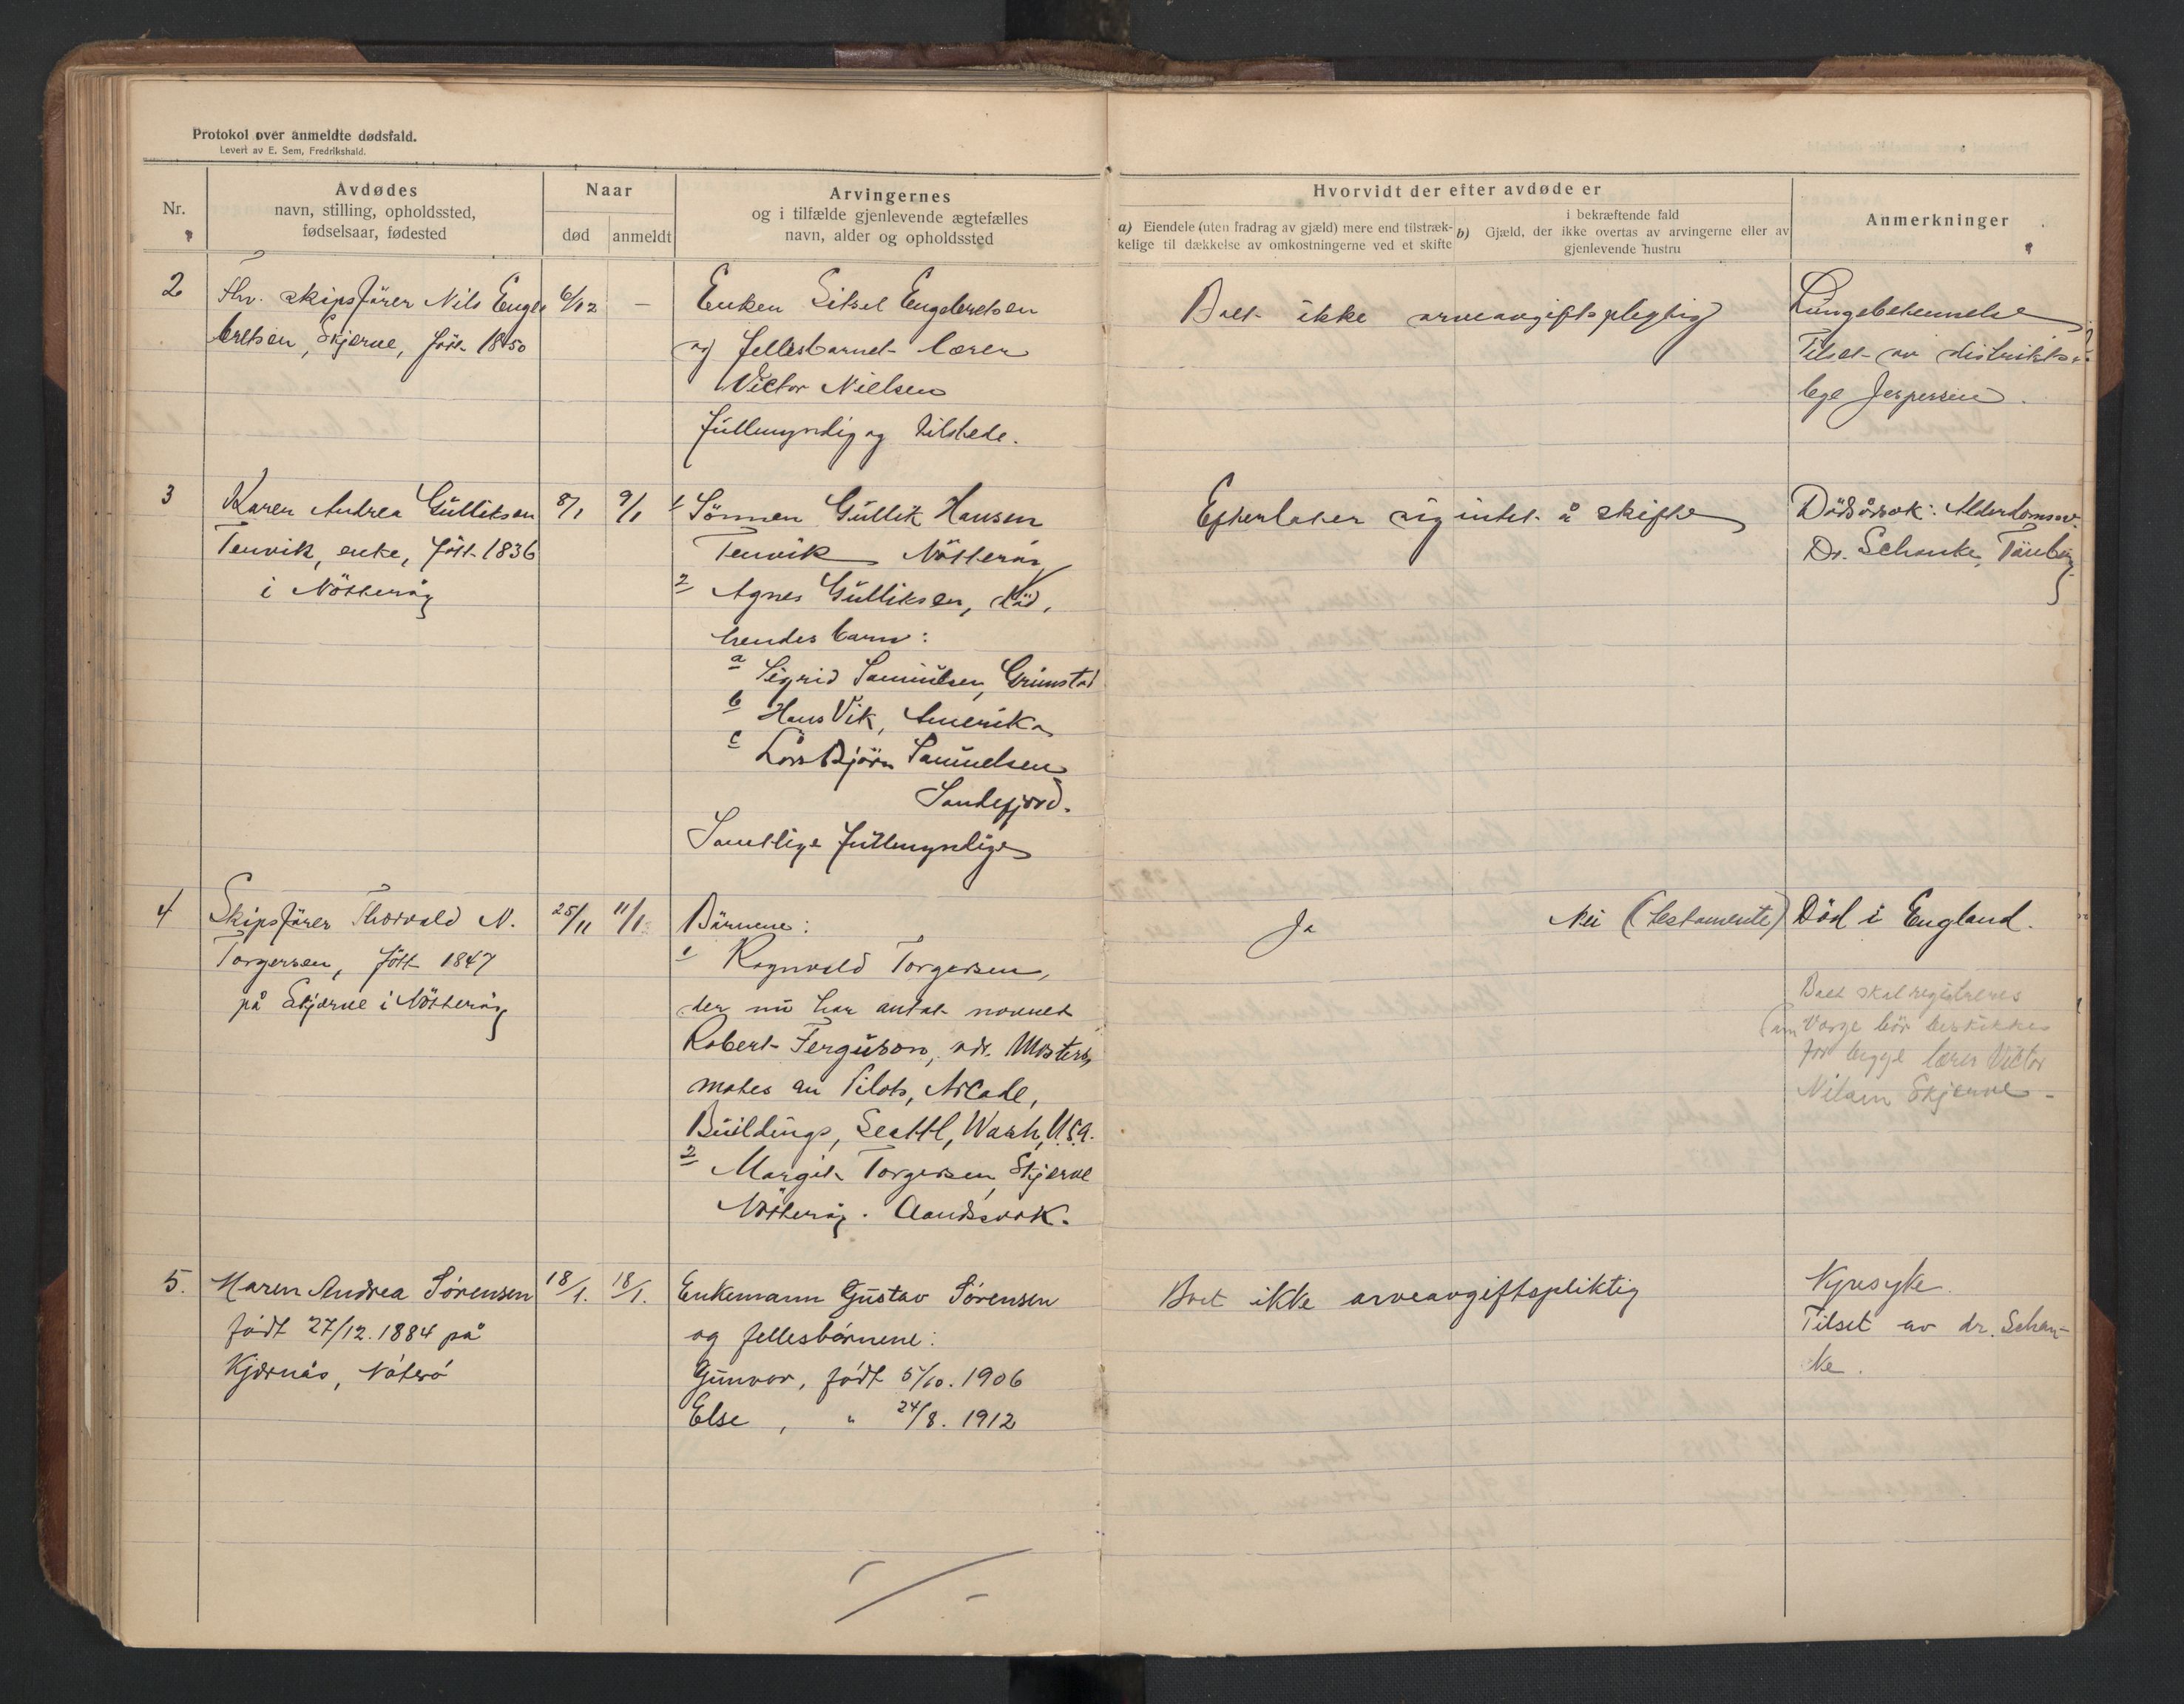 Protokol over anmeldte dødsfald.
Levert av E. Sem, Fredrikshald.
Nr.
Avdødes
navn, stilling, opholdssted,
fødselsaar, fødested
Naar
død
anmeldt
Arvingernes
og i tilfælde gjenlevende ægtefælles
navn, alder og opholdssted
Hvorvidt der efter avdøde er
a) Eiendele (uten fradrag av gjæld) mere end tilstræk-
kelige til dækkelse av omkostningerne ved et skifte
i bekræftende fald
b) Gjæld, der ikke overtas av arvingerne eller av
gjenlevende hustru
Anmerkninger
2
Fhv. skipsförer Nils Enge
bretsen, Skjerve, född 1850
6/12
—
Enken Sitsel Engebretsen
og fellesbarnet lærer
Victor Nielsen
fullmyndig og tilstede.
Boet ikke arveavgiftsplegtig
Lungebetennelse
Tilset av distrikts
lege Jespersen.
3
Karen Andrea Gulliksen
Tenvik, enke, född 1836
i Nötteröy
8/1
9/1
1 Sönnen Gullik Hansen
Tenvik Nötteröy
2 Agnes Gulliksen, död,
hendes barn:
a Sigrid Samuelsen, Grimstad
b Hans Vik, Amerika
c Lars Björn Samuelsen
Sandefjord.
Samtlige fullmyndige
Efterlater sig intet å skifte
Dödsårsak: Alderdomssv.
Dr. Schanke, Tönsberg
4
Skipsförer Thorvald N.
Torgersen, född 1847
på Skjerve i Nötteröy
25/11
11/1
Börnene:
1 Ragnvald Torgersen,
der nu har antat navnet
Robert Ferguson, adr. Masters,
mates an Pilots, Arcade,
Buildings, Seattl, Wash, U.S.A.
2 Margit Torgersen, Skjerve
Nötteröy. Aandssvak.
Ja
Nei (testamente)
Död i England.
Boet skal registreres
Verge bör beskikkes
for begge lærer Victor
Nilsen Skjerve -
5.
Maren Andrea Sörensen
födt 27/12. 1884 på
Kjærnås, Nöterö
18/1.
18/1.
Enkemann Gustav Sörensen
og fellesbörnene:
Gunvor, födt 5/10. 1906
Else, " 24/8. 1912
Boet ikke arveavgiftspliktig
Nyresyke.
Tilset av dr. Schan-
ke.